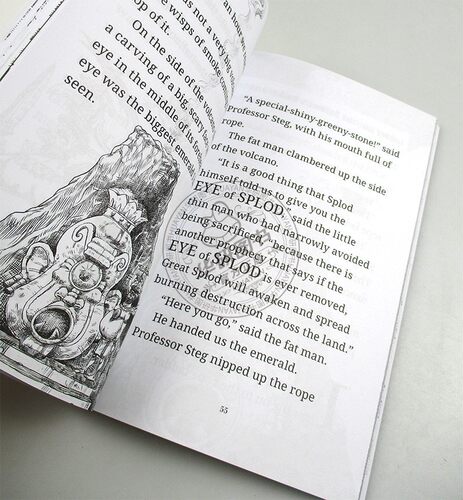 was not a very big
e wisps of smoke
op of it.
On the side of the
a carving of a big, scary face
eye in the middle of its
eye was the biggest emerald
seen.
"A special-shiny-greeny-stone!" said
Professor Steg, with his mouth full of
rope.
The fat man clambered up the side
of the volcano.
"It is a good thing that Splod
himself told us to give you the
EYE of SPLOD," said the little
thin man who had narrowly avoided
being sacrificed, "because there is
another prophecy that says if the
EYE of SPLOD is ever removed,
Great Splod will awaken and spread
burning destruction across the land."
"Here you go," said the fat man.
He handed us the emerald.
Professor Steg nipped up the rope
55